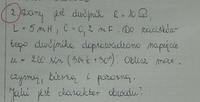 2. Dany jest dwójnik R = 10 Ω,
L = 5 mH, C = 0,2 mF. Do zacisków
tego dwójnika doprowadzono napięcie
u = 220 sin (314t + 30°). Oblicz moc
czynną, bierną i pozorną.
Jaki jest charakter obwodu?